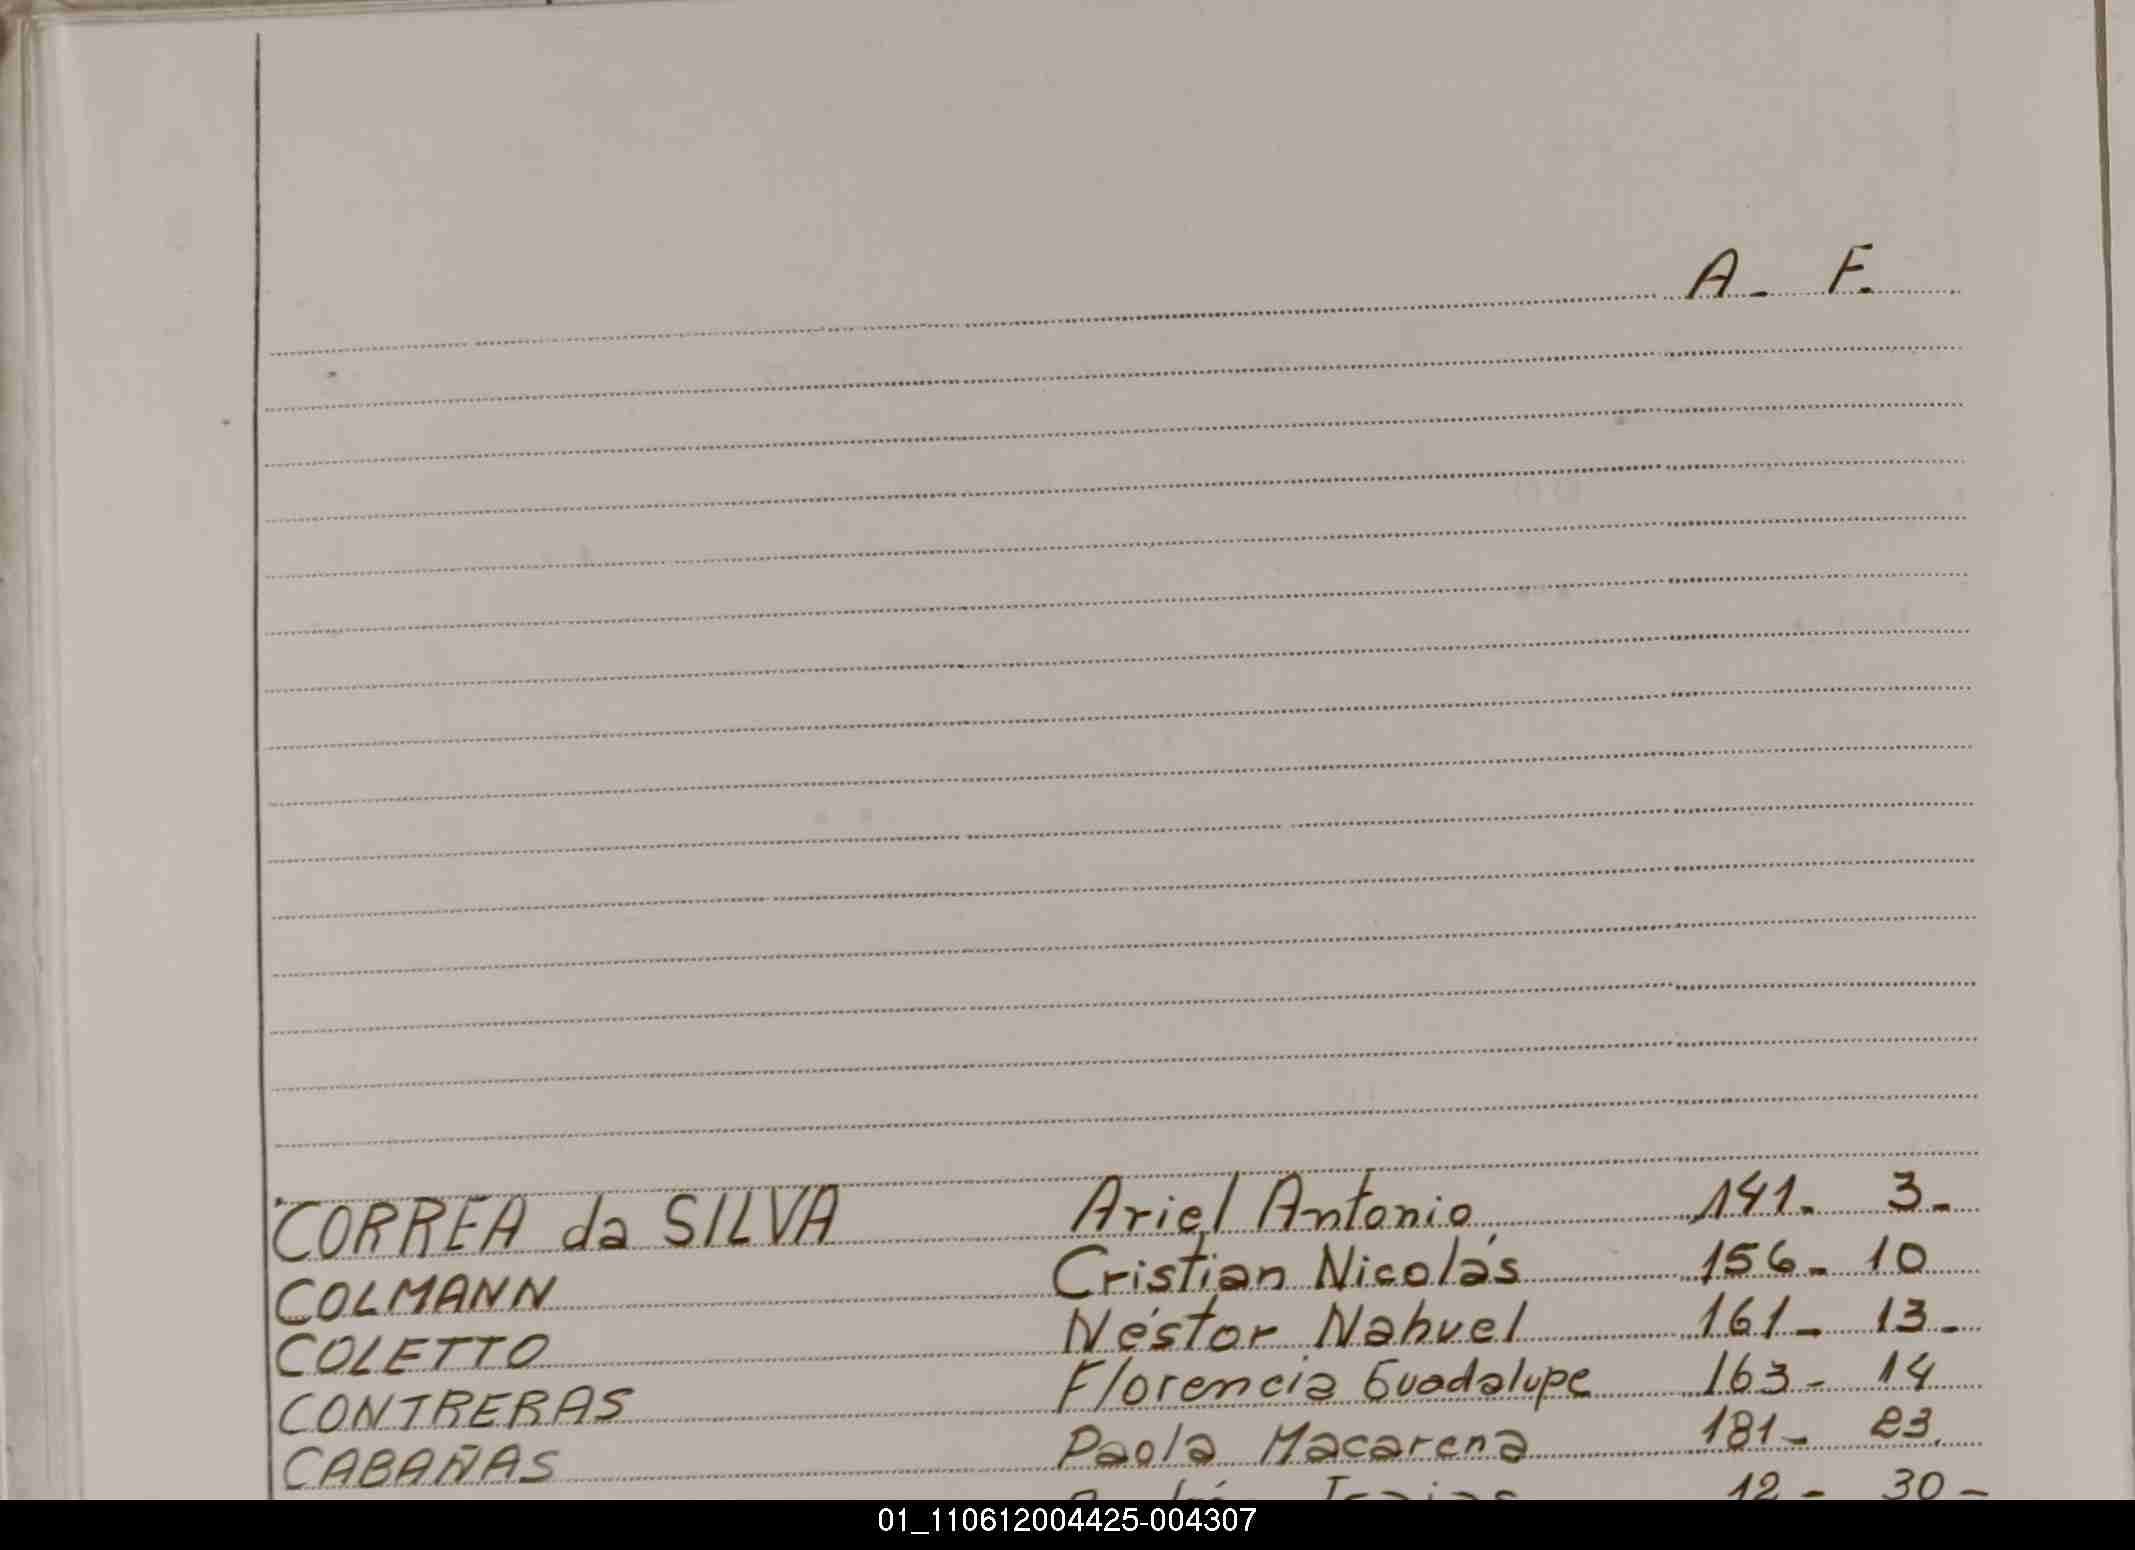 A. F.
CORREA da SILVA Ariel Antonio 141. 3.
COLMANN Cristian Nicolás 156. 10
COLETTO Néstor Nahuel 161. 13.
CONTRERAS Florencia Guadalupe 163. 14
CABAÑAS Paola Macarena 181. 23.
12. 30.
01_110612004425-004307